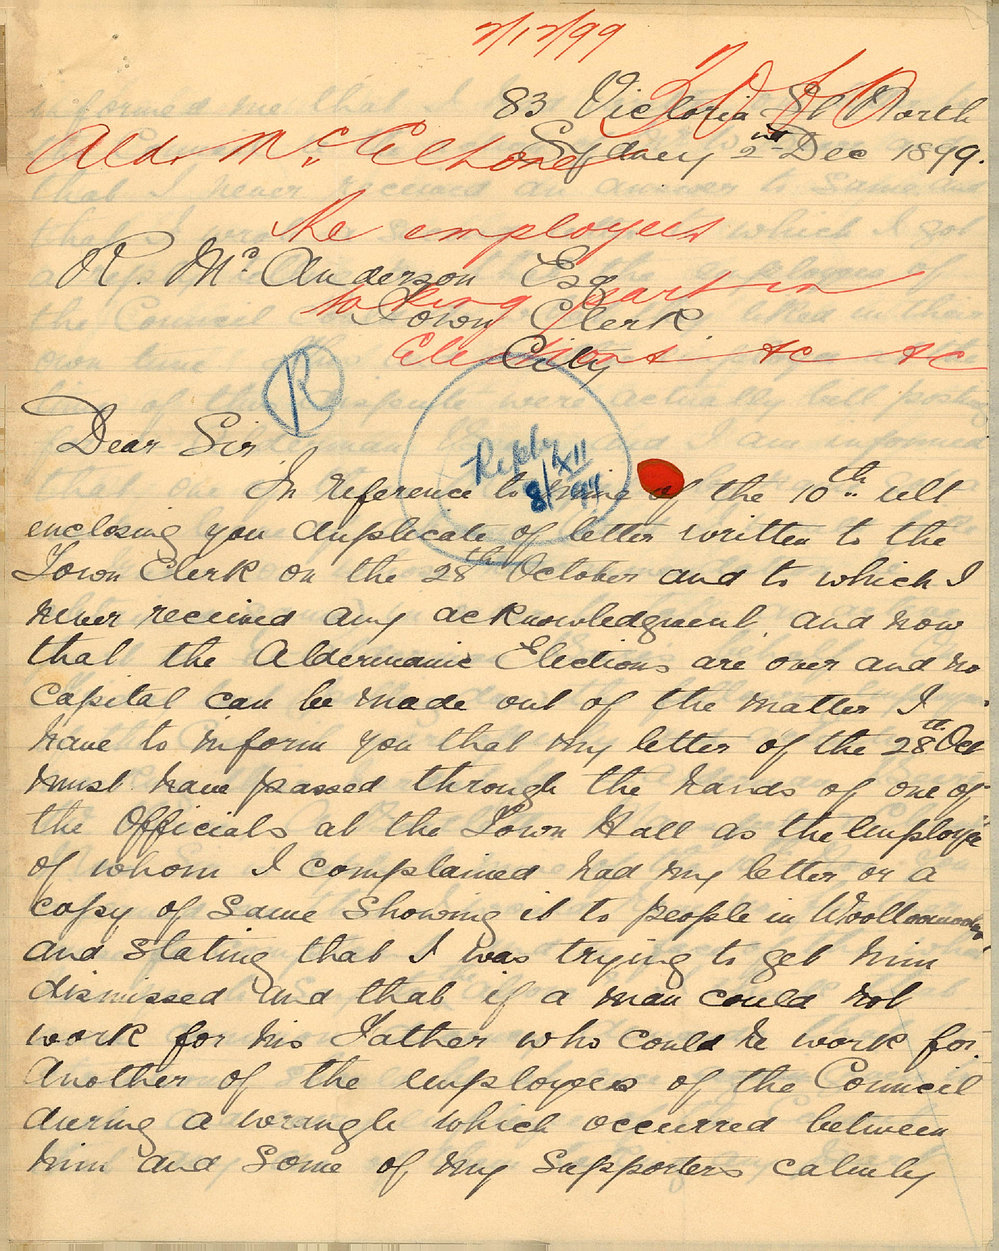 2/12/99
83 Victoria St North
Sydney 2nd Dec 1899.
Ald. McElhone
re employees
taking part in
Elections &c &c
R. Mc. Anderson Esq
Town Clerk
City
R
Reply
8/XII/99
Dear Sir
In reference to mine of the 10th ult
enclosing you duplicate of letter written to the
Town Clerk on the 28th October and to which I
never received any acknowledgment and now
that the Aldermanic Elections are over and no
capital can be made out of the matter I
have to inform you that my letter of the 28th Oct
must have passed through the hands of one of
the Officials at the Town Hall as the employe
of whom I complained had my letter or a
copy of same showing it to people in Woolloomooloo
and stating that I was trying to get him
dismissed and that if a man could not
work for his Father who could he work for.
Another of the employees of the Council
during a wrangle which occurred between
him and some of my supporters calmly